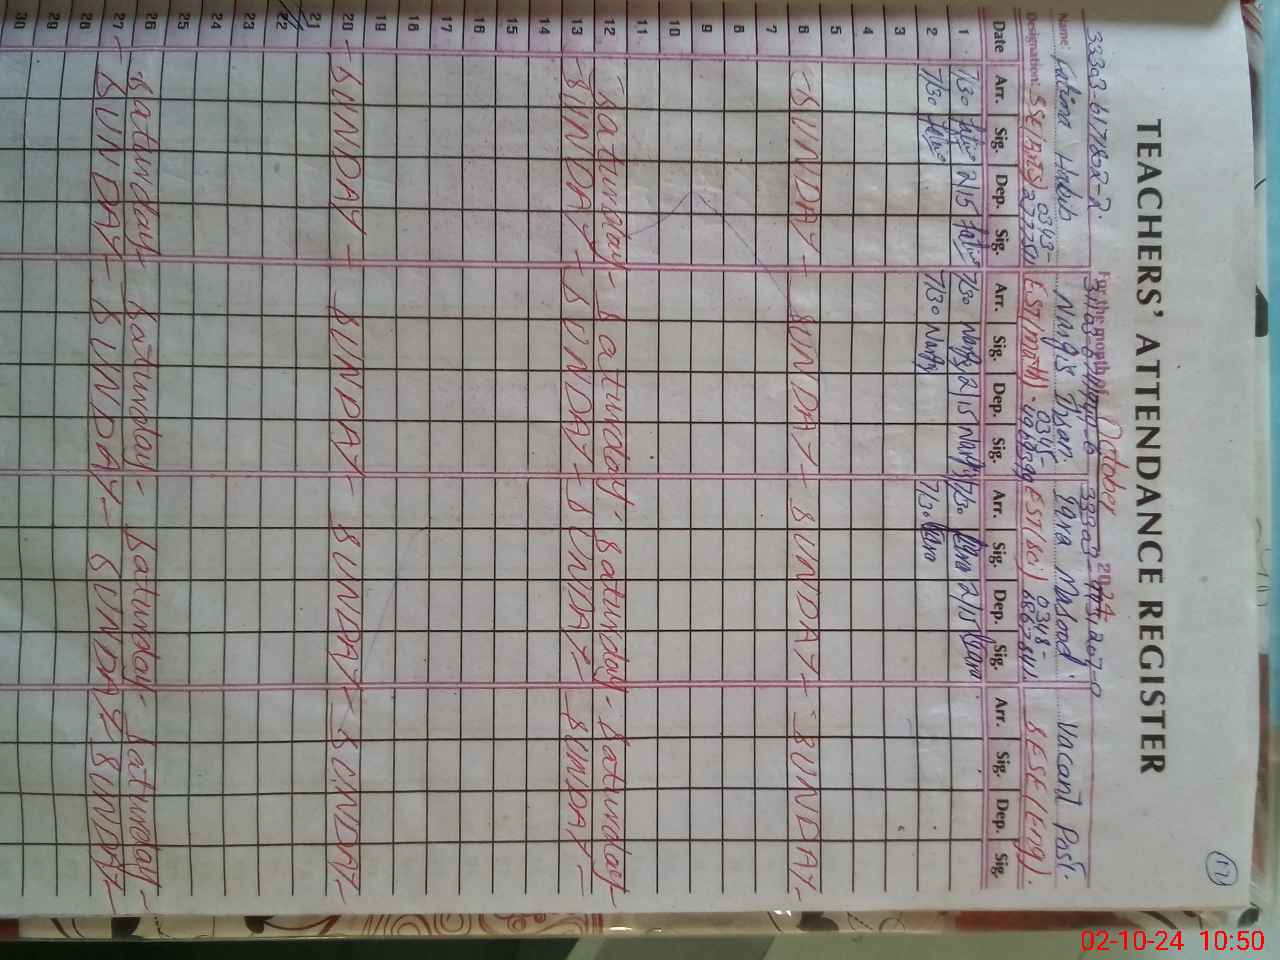 17
TEACHERS' ATTENDANCE REGISTER
For the month of October 2024
Name: Fatima Habib Nargis Ihsan. Iqra Masood. Vacant Post.
Designation: SSE (EST) 0343- EST (math) 0345- EST (Sci) 0318- SESE (Eng).
Date Arr. Sig. Dep. Sig. Arr. Sig. Dep. Sig. Arr. Sig. Dep. Sig. Arr. Sig. Dep. Sig.
1 7/30 2/15 7/30 Nargis 2/15 Nargis 7/30 Iqra 2/15 Iqra
2 7/30 7/30 Nargis 7/30 Iqra
3
4
5
6 - SUNDAY - SUNDAY - SUNDAY - SUNDAY -
7
8
9
10
11
12 Saturday - Saturday - Saturday - Saturday -
13 - SUNDAY - SUNDAY - SUNDAY - SUNDAY -
14
15
16
17
18
19
20 - SUNDAY - SUNDAY - SUNDAY - SUNDAY -
21
22
23
24
25
26 Saturday - Saturday - Saturday - Saturday -
27 - SUNDAY - SUNDAY - SUNDAY - SUNDAY -
28
29
30
02-10-24 10:50